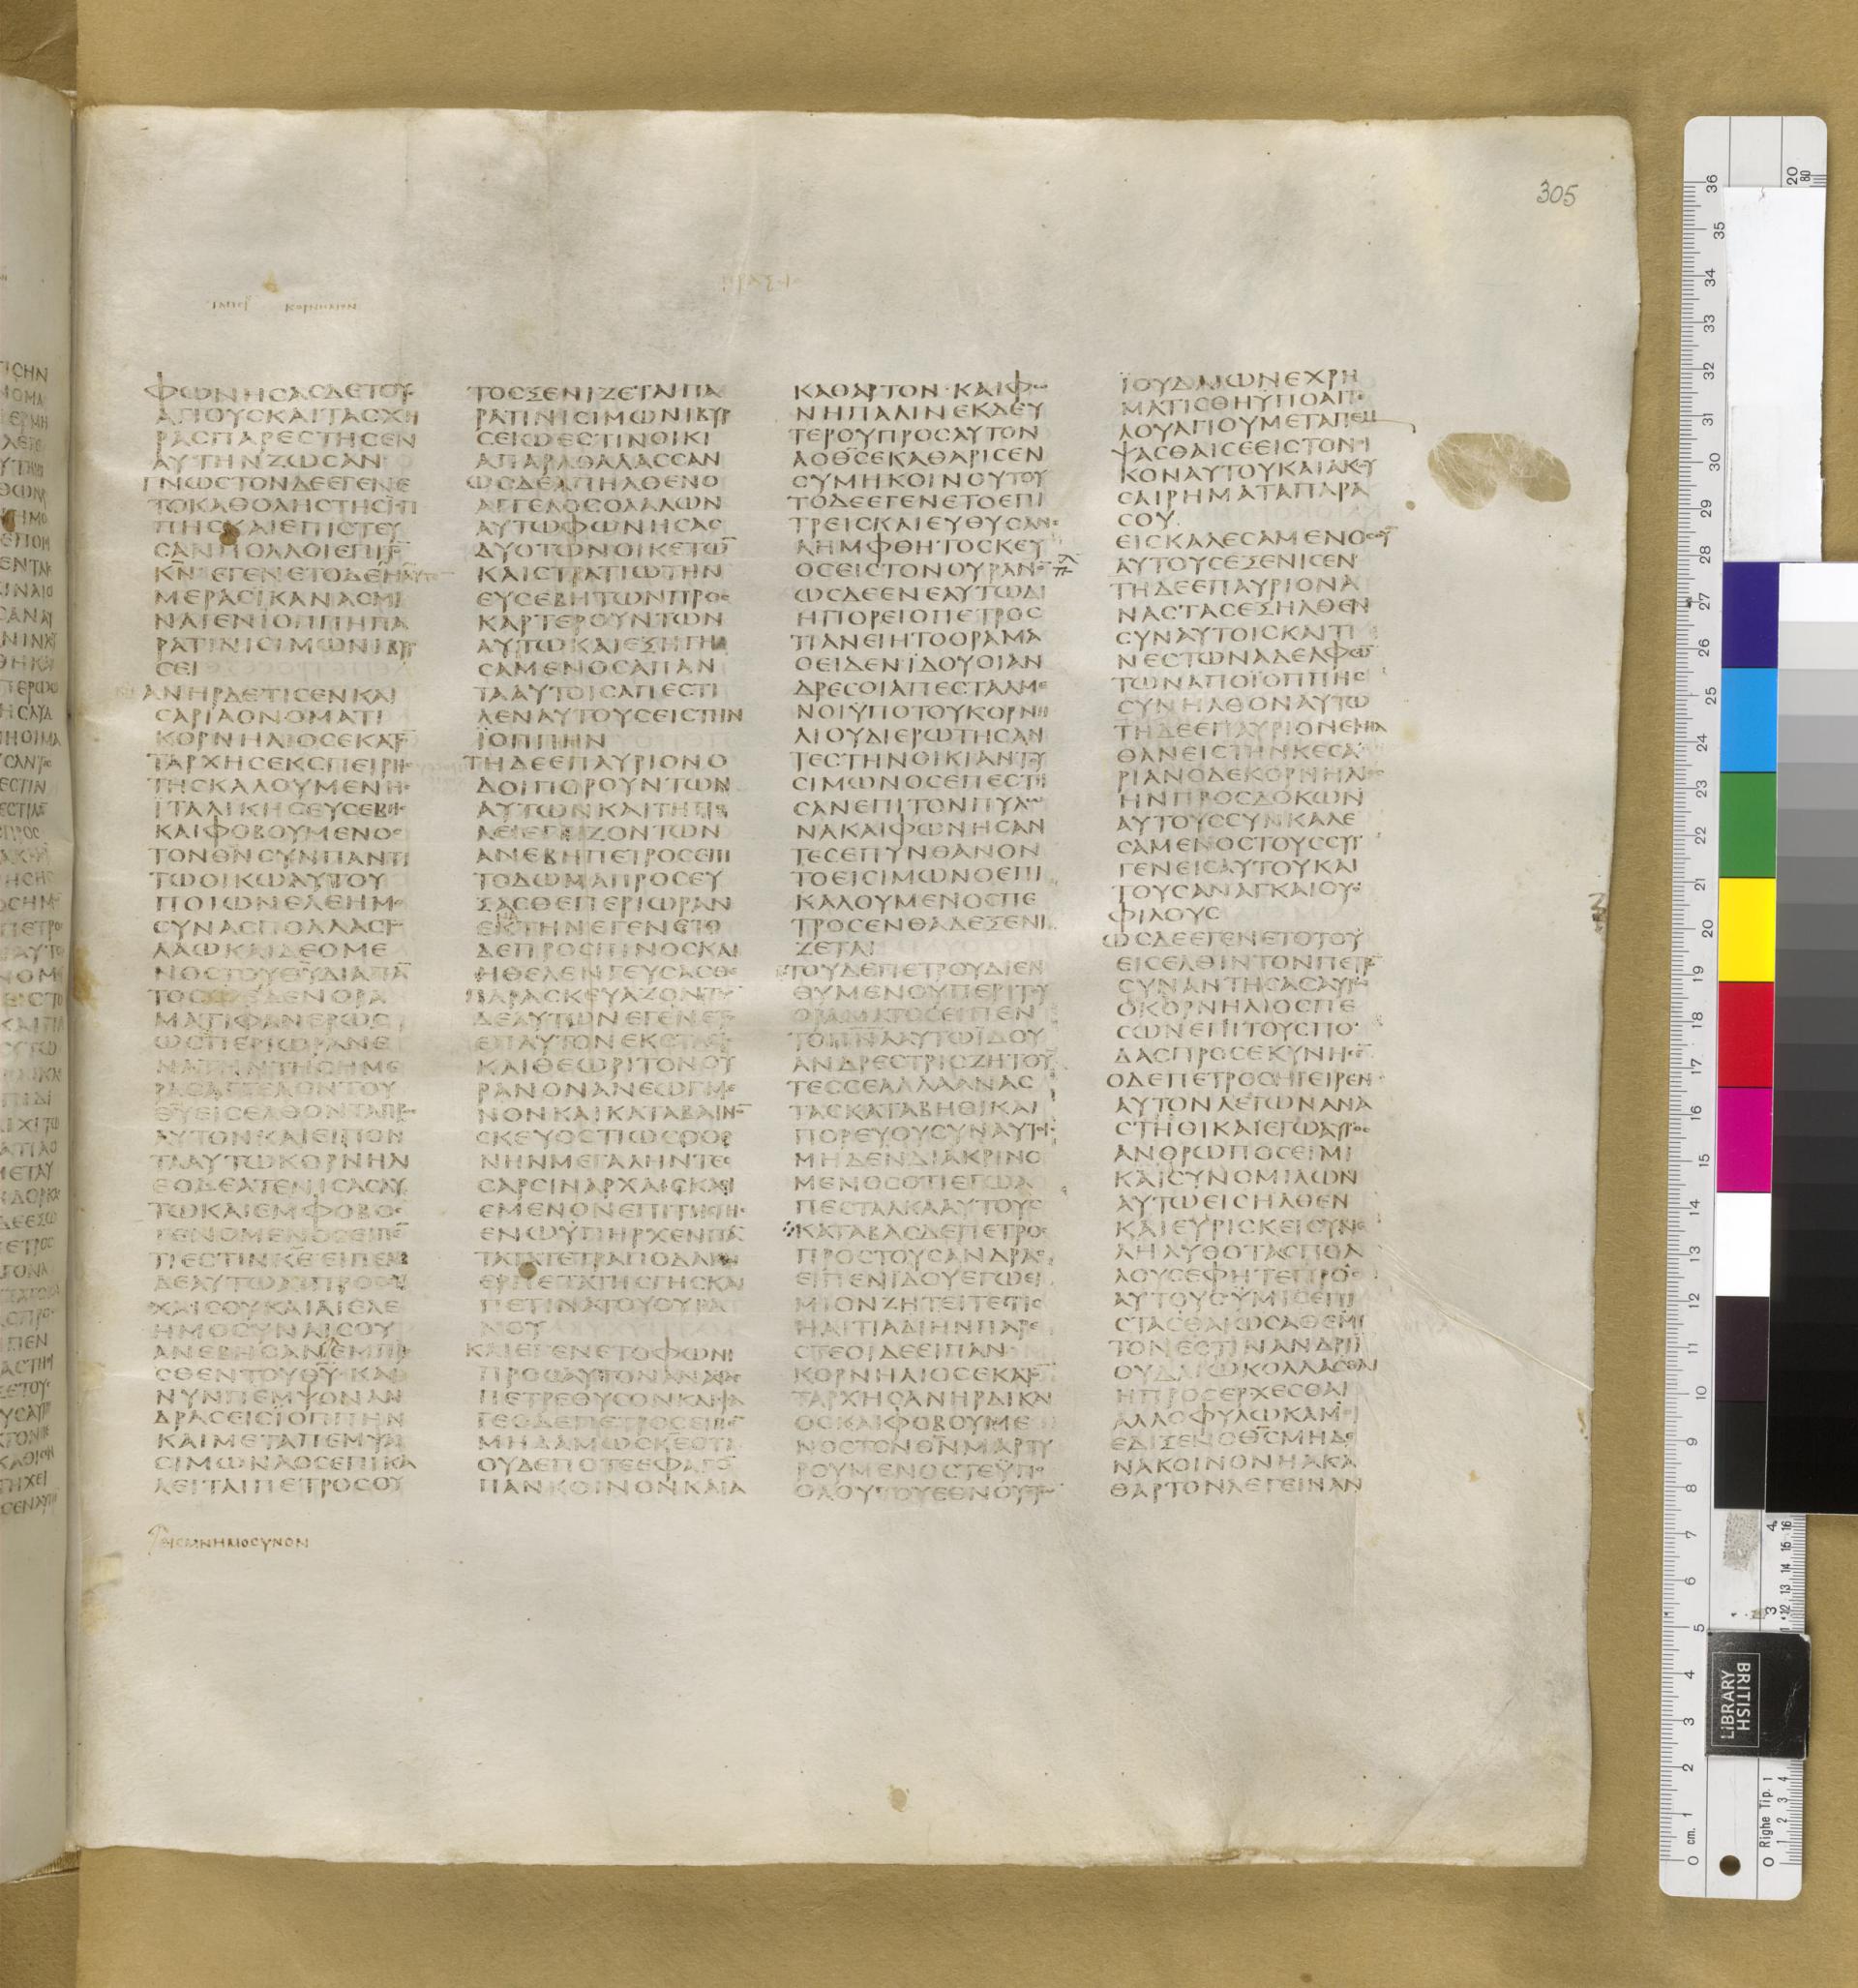 305
ΦΩΝΗCΑCΔΕΤΟΥ
ΑΓΙΟΥCΚΑΙΤΑCΧΗ
ΡΑCΠΑΡΕCΤΗCΕΝ
ΑΥΤΗΝΖΩCΑΝ
ΓΝΩCΤΟΝΔΕΕΓΕΝΕ
ΤΟΚΑΘΟΛΗCΤΗCΪΠ
ΠΗCΚΑΙΕΠΙCΤΕΥ
CΑΝΠΟΛΛΟΙΕΠΙΤ̅
Κ̅Ν̅ ΕΓΕΝΕΤΟΔΕΗ
ΜΕΡΑCΪΚΑΝΑCΜΙ
ΝΑΙΕΝΙΟΠΠΗΠΑ
ΡΑΤΙΝΙCΙΜΩΝΙΒΥΡ
CΕΙ
ΑΝΗΡΔΕΤΙCΕΝΚΑΙ
CΑΡΙΑΟΝΟΜΑΤΙ
ΚΟΡΝΗΛΙΟCΕΚΑΤ̅
ΤΑΡΧΗCΕΚCΠΕΙΡΗC
ΤΗCΚΑΛΟΥΜΕΝΗC
ΪΤΑΛΙΚΗCΕΥCΕΒΗC
ΚΑΙΦΟΒΟΥΜΕΝΟC
ΤΟΝΘ̅Ν̅CΥΝΠΑΝΤΙ
ΤΩΟΙΚΩΑΥΤΟΥ
ΠΟΙΩΝΕΛΕΗΜΟ
CΥΝΑCΠΟΛΛΑCΤ
ΛΑΩΚΑΙΔΕΟΜΕ
ΝΟCΤΟΥΘ̅Υ̅ΔΙΑΠΑ̅
ΤΟCΕΙΔΕΝΟΡΑ
ΜΑΤΙΦΑΝΕΡΩC
ΩCΠΕΡΙΩΡΑΝΕ
ΝΑΤΗΝΤΗCΗΜΕ
ΡΑCΑΓΓΕΛΟΝΤΟΥ
Θ̅Υ̅ΕΙCΕΛΘΟΝΤΑΠΡ
ΑΥΤΟΝΚΑΙΕΙΠΟΝ
ΤΑΑΥΤΩΚΟΡΝΗΛΙ
ΕΟΔΕΑΤΕΝΙCΑCΑΥ
ΤΩΚΑΙΕΜΦΟΒΟC
ΓΕΝΟΜΕΝΟCΕΙΠΕ̅
ΤΙΕCΤΙΝΚ̅Ε̅ΕΙΠΕΝ
ΔΕΑΥΤΩΑΙΠΡΟCΕΥ
ΧΑΙCΟΥΚΑΙΑΙΕΛΕ
ΗΜΟCΥΝΑΙCΟΥ
ΑΝΕΒΗCΑΝΕΜΠΡΟ
CΘΕΝΤΟΥΘ̅Υ̅ΚΑΙ
ΝΥΝΠΕΜΨΟΝΑΝ
ΔΡΑCΕΙCΪΟΠΠΗΝ
ΚΑΙΜΕΤΑΠΕΜΨΑΙ
CΙΜΩΝΑΟCΕΠΙΚΑ
ΛΕΙΤΑΙΠΕΤΡΟCΟΥ
ΕΙCΜΝΗΜΟCΥΝΟΝ
ΤΟCΞΕΝΙΖΕΤΑΙΠΑ
ΡΑΤΙΝΙCΙΜΩΝΙΒΥΡ
CΕΙΩΕCΤΙΝΟΙΚΙ
ΑΠΑΡΑΘΑΛΑCCΑΝ
ΩCΔΕΑΠΗΛΘΕΝΟ
ΑΓΓΕΛΟCΟΛΑΛΩΝ
ΑΥΤΩΦΩΝΗCΑC
ΔΥΟΤΩΝΟΙΚΕΤΩ̅
ΚΑΙCΤΡΑΤΙΩΤΗΝ
ΕΥCΕΒΗΤΩΝΠΡΟC
ΚΑΡΤΕΡΟΥΝΤΩΝ
ΑΥΤΩΚΑΙΕΞΗΓΗ
CΑΜΕΝΟCΑΠΑΝ
ΤΑΑΥΤΟΙCΑΠΕCΤΙ
ΛΕΝΑΥΤΟΥCΕΙCΤΗΝ
ΪΟΠΠΗΝ
ΤΗΔΕΕΠΑΥΡΙΟΝΟ
ΔΟΙΠΟΡΟΥΝΤΩΝ
ΑΥΤΩΝΚΑΙΤΗΠΟ
ΛΕΙΕΓΓΙΖΟΝΤΩΝ
ΑΝΕΒΗΠΕΤΡΟCΕΠΙ
ΤΟΔΩΜΑΠΡΟCΕΥ
ΞΑCΘΕΠΕΡΙΩΡΑΝ
ΕΚΤΗΝΕΓΕΝΕΤΟ
ΔΕΠΡΟCΠΙΝΟCΚΑΙ
ΗΘΕΛΕΝΓΕΥCΑCΘΕ
ΠΑΡΑCΚΕΥΑΖΟΝΤΩ
ΔΕΑΥΤΩΝΕΓΕΝΕΤ
ΕΠΑΥΤΟΝΕΚCΤΑCΙC
ΚΑΙΘΕΩΡΙΤΟΝΟΥ
ΡΑΝΟΝΑΝΕΩΓΜΕ
ΝΟΝΚΑΙΚΑΤΑΒΑΙΝΟ̅
CΚΕΥΟCΤΙΩCΟΘΟ
ΝΗΝΜΕΓΑΛΗΝΤΕC
CΑΡCΙΝΑΡΧΑΙCΚΑΘΙ
ΕΜΕΝΟΝΕΠΙΤΗCΓΗC
ΕΝΩΥΠΗΡΧΕΝΠΑ̅
ΤΑΤΑΤΕΤΡΑΠΟΔΑΚΑΙ
ΕΡΠΕΤΑΤΗCΓΗCΚΑΙ
ΠΕΤΙΝΑΤΟΥΟΥΡΑ
ΝΟΥ
ΚΑΙΕΓΕΝΕΤΟΦΩΝΗ
ΠΡΟCΑΥΤΟΝΑΝΑCΤΑC
ΠΕΤΡΕΘΥCΟΝΚΑΙΦΑ
ΓΕΟΔΕΠΕΤΡΟCΕΙΠΕ̅
ΜΗΔΑΜΩCΚ̅Ε̅ΟΤΙ
ΟΥΔΕΠΟΤΕΕΦΑΓΟ̅
ΠΑΝΚΟΙΝΟΝΚΑΙΑ
ΚΑΘΑΡΤΟΝ·ΚΑΙΦΩ
ΝΗΠΑΛΙΝΕΚΔΕΥ
ΤΕΡΟΥΠΡΟCΑΥΤΟΝ
ΑΟΘ̅C̅ΕΚΑΘΑΡΙCΕΝ
CΥΜΗΚΟΙΝΟΥΤΟΥ
ΤΟΔΕΕΓΕΝΕΤΟΕΠΙ
ΤΡΕΙCΚΑΙΕΥΘΥCΑΝΕ
ΛΗΜΦΘΗΤΟCΚΕΥ
ΟCΕΙCΤΟΝΟΥΡΑΝΟ̅
ΩCΔΕΕΝΕΑΥΤΩΔΙ
ΗΠΟΡΕΙΟΠΕΤΡΟC
ΤΙΑΝΕΙΗΤΟΟΡΑΜΑ
ΟΕΙΔΕΝΪΔΟΥΟΙΑΝ
ΔΡΕCΟΙΑΠΕCΤΑΛΜΕ
ΝΟΙΫΠΟΤΟΥΚΟΡΝΗ
ΛΙΟΥΔΙΕΡΩΤΗCΑΝ
ΤΕCΤΗΝΟΙΚΙΑΝΤΟΥ
CΙΜΩΝΟCΕΠΕCΤΗ
CΑΝΕΠΙΤΟΝΠΥΛΩ
ΝΑΚΑΙΦΩΝΗCΑΝ
ΤΕCΕΠΥΝΘΑΝΟΝ
ΤΟΕΙCΙΜΩΝΟΕΠΙ
ΚΑΛΟΥΜΕΝΟCΠΕ
ΤΡΟCΕΝΘΑΔΕΞΕΝΙ
ΖΕΤΑΙ
ΤΟΥΔΕΠΕΤΡΟΥΔΙΕΝ
ΘΥΜΕΝΟΥΠΕΡΙΤΟΥ
ΟΡΑΜΑΤΟCΕΙΠΕΝ
ΤΟΠ̅Ν̅Α̅ΑΥΤΩΪΔΟΥ
ΑΝΔΡΕCΤΡΙCΖΗΤΟΥ
ΤΕCCΕΑΛΛΑΑΝΑC
ΤΑCΚΑΤΑΒΗΘΙΚΑΙ
ΠΟΡΕΥΟΥCΥΝΑΥΤΟΙC
ΜΗΔΕΝΔΙΑΚΡΙΝΟ
ΜΕΝΟCΟΤΙΕΓΩΑ
ΠΕCΤΑΛΚΑΑΥΤΟΥC
ΚΑΤΑΒΑCΔΕΠΕΤΡΟC
ΠΡΟCΤΟΥCΑΝΔΡΑC
ΕΙΠΕΝΪΔΟΥΕΓΩΕΙ
ΜΙΟΝΖΗΤΕΙΤΕΤΙC
ΗΑΙΤΙΑΔΙΗΝΠΑΡΕ
CΤΕΟΙΔΕΕΙΠΑΝ
ΚΟΡΝΗΛΙΟCΕΚΑΤΟ̅
ΤΑΡΧΗCΑΝΗΡΔΙΚΑΙ
ΟCΚΑΙΦΟΒΟΥΜΕ
ΝΟCΤΟΝΘ̅Ν̅ΜΑΡΤΥ
ΡΟΥΜΕΝΟCΤΕΫΠΟ
ΟΛΟΥΤΟΥΕΘΝΟΥCΤΩ̅
ΪΟΥΔΑΙΩΝΕΧΡΗ
ΜΑΤΙCΘΗΫΠΟΑΓΓΕ
ΛΟΥΑΓΙΟΥΜΕΤΑΠΕΜ
ΨΑCΘΑΙCΕΕΙCΤΟΝΟΙ
ΚΟΝΑΥΤΟΥΚΑΙΑΚΟΥ
CΑΙΡΗΜΑΤΑΠΑΡΑ
CΟΥ
ΕΙCΚΑΛΕCΑΜΕΝΟCΟΥ̅
ΑΥΤΟΥCΕΞΕΝΙCΕΝ
ΤΗΔΕΕΠΑΥΡΙΟΝΑ
ΝΑCΤΑCΕΞΗΛΘΕΝ
CΥΝΑΥΤΟΙCΚΑΙΤΙ
ΝΕCΤΩΝΑΔΕΛΦΩ̅
ΤΩΝΑΠΟΪΟΠΠΗC
CΥΝΗΛΘΟΝΑΥΤΩ
ΤΗΔΕΕΠΑΥΡΙΟΝΕΙCΗΛ
ΘΑΝΕΙCΤΗΝΚΕCΑ
ΡΙΑΝΟΔΕΚΟΡΝΗΛΙΟC
ΗΝΠΡΟCΔΟΚΩΝ
ΑΥΤΟΥCCΥΝΚΑΛΕ
CΑΜΕΝΟCΤΟΥCCΥΓ
ΓΕΝΕΙCΑΥΤΟΥΚΑΙ
ΤΟΥCΑΝΑΓΚΑΙΟΥC
ΦΙΛΟΥC
ΩCΔΕΕΓΕΝΕΤΟΤΟΥ
ΕΙCΕΛΘΙΝΤΟΝΠΕΤΡΟ̅
CΥΝΑΝΤΗCΑCΑΥΤΩ
ΟΚΟΡΝΗΛΙΟCΠΕ
CΩΝΕΠΙΤΟΥCΠΟ
ΔΑCΠΡΟCΕΚΥΝΗCΕ̅
ΟΔΕΠΕΤΡΟCΗΓΕΙΡΕΝ
ΑΥΤΟΝΛΕΓΩΝΑΝΑ
CΤΗΘΙΚΑΙΕΓΩΑΥΤΟC
ΑΝΘΡΩΠΟCΕΙΜΙ
ΚΑΙCΥΝΟΜΙΛΩΝ
ΑΥΤΩΕΙCΗΛΘΕΝ
ΚΑΙΕΥΡΙCΚΕΙCΥΝΕ
ΛΗΛΥΘΟΤΑCΠΟΛ
ΛΟΥCΕΦΗΤΕΠΡΟC
ΑΥΤΟΥCΫΜΙCΕΠΙ
CΤΑCΘΑΙΩCΑΘΕΜΙ
ΤΟΝΕCΤΙΝΑΝΔΡΙΪ
ΟΥΔΑΙΩΚΟΛΛΑCΘΑΙ
ΗΠΡΟCΕΡΧΕCΘΑΙ
ΑΛΛΟΦΥΛΩΚΑΜΟΙ
ΕΔΙΞΕΝΟΘ̅C̅ΜΗΔΕ
ΝΑΚΟΙΝΟΝΗΑΚΑ
ΘΑΡΤΟΝΛΕΓΕΙΝΑΝ